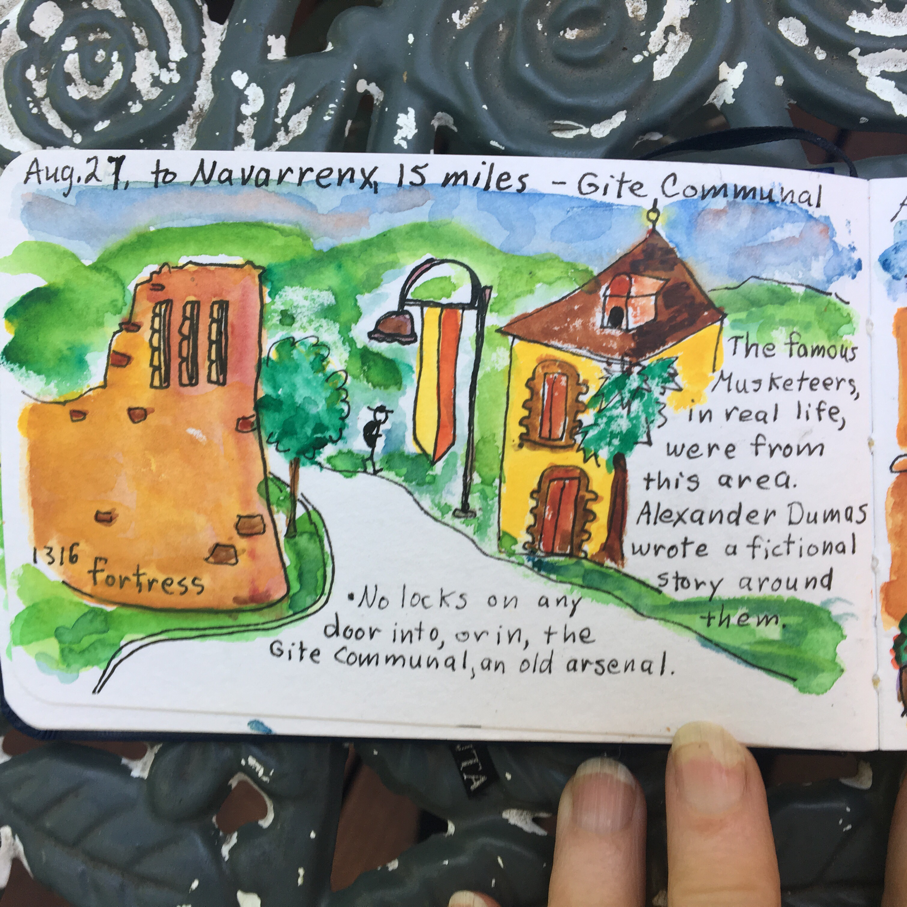 Aug.27, to Navarrenx, 15 miles - Gite Communal
The famous
Musketeers,
in real life,
were from
this area.
Alexander Dumas
wrote a fictional
story around
them.
1316
fortress
•No locks on any
door into, or in, the
Gite Communal, an old arsenal.